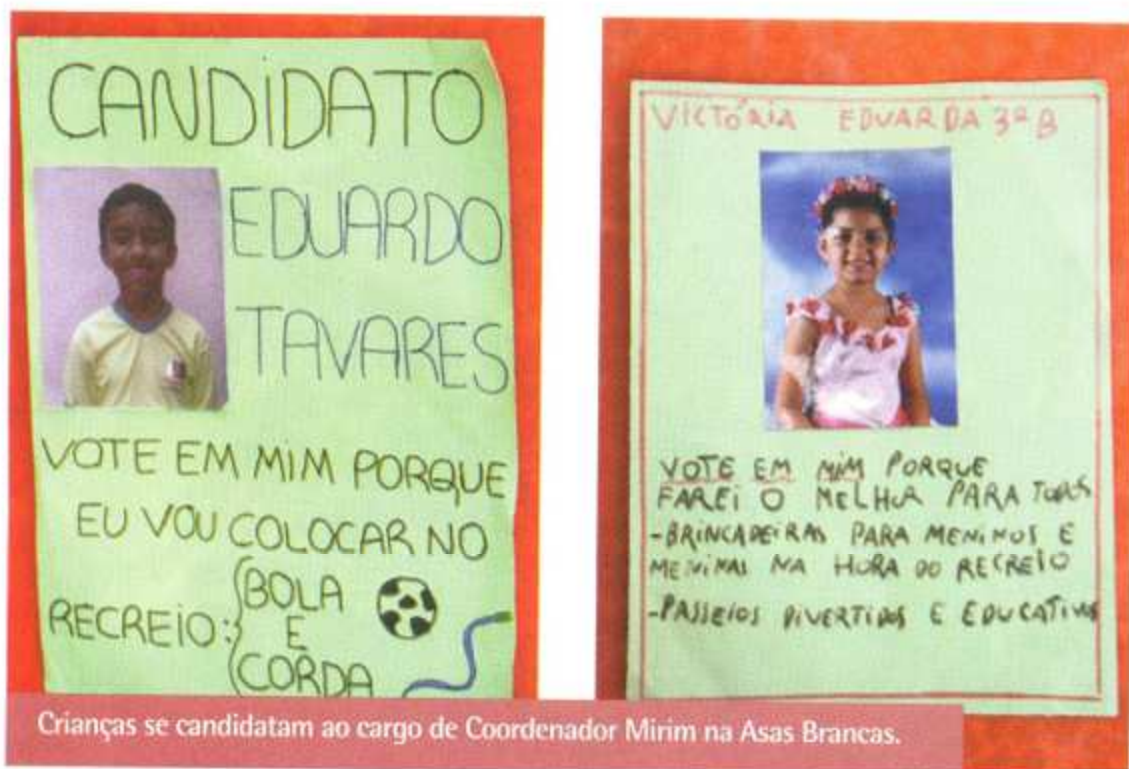 CANDIDATO
EDUARDO
TAVARES
VOTE EM MIM PORQUE
EU VOU COLOCAR NO
RECREIO:
BOLA
E
CORDA
VICTÓRIA EDUARDA 3º B
VOTE EM MIM PORQUE
FAREI O MELHOR PARA TODOS
-BRINCADEIRAS PARA MENINOS E
MENINAS NA HORA DO RECREIO
-PASSEIOS DIVERTIDOS E EDUCATIVOS
Crianças se candidatam ao cargo de Coordenador Mirim na Asas Brancas.